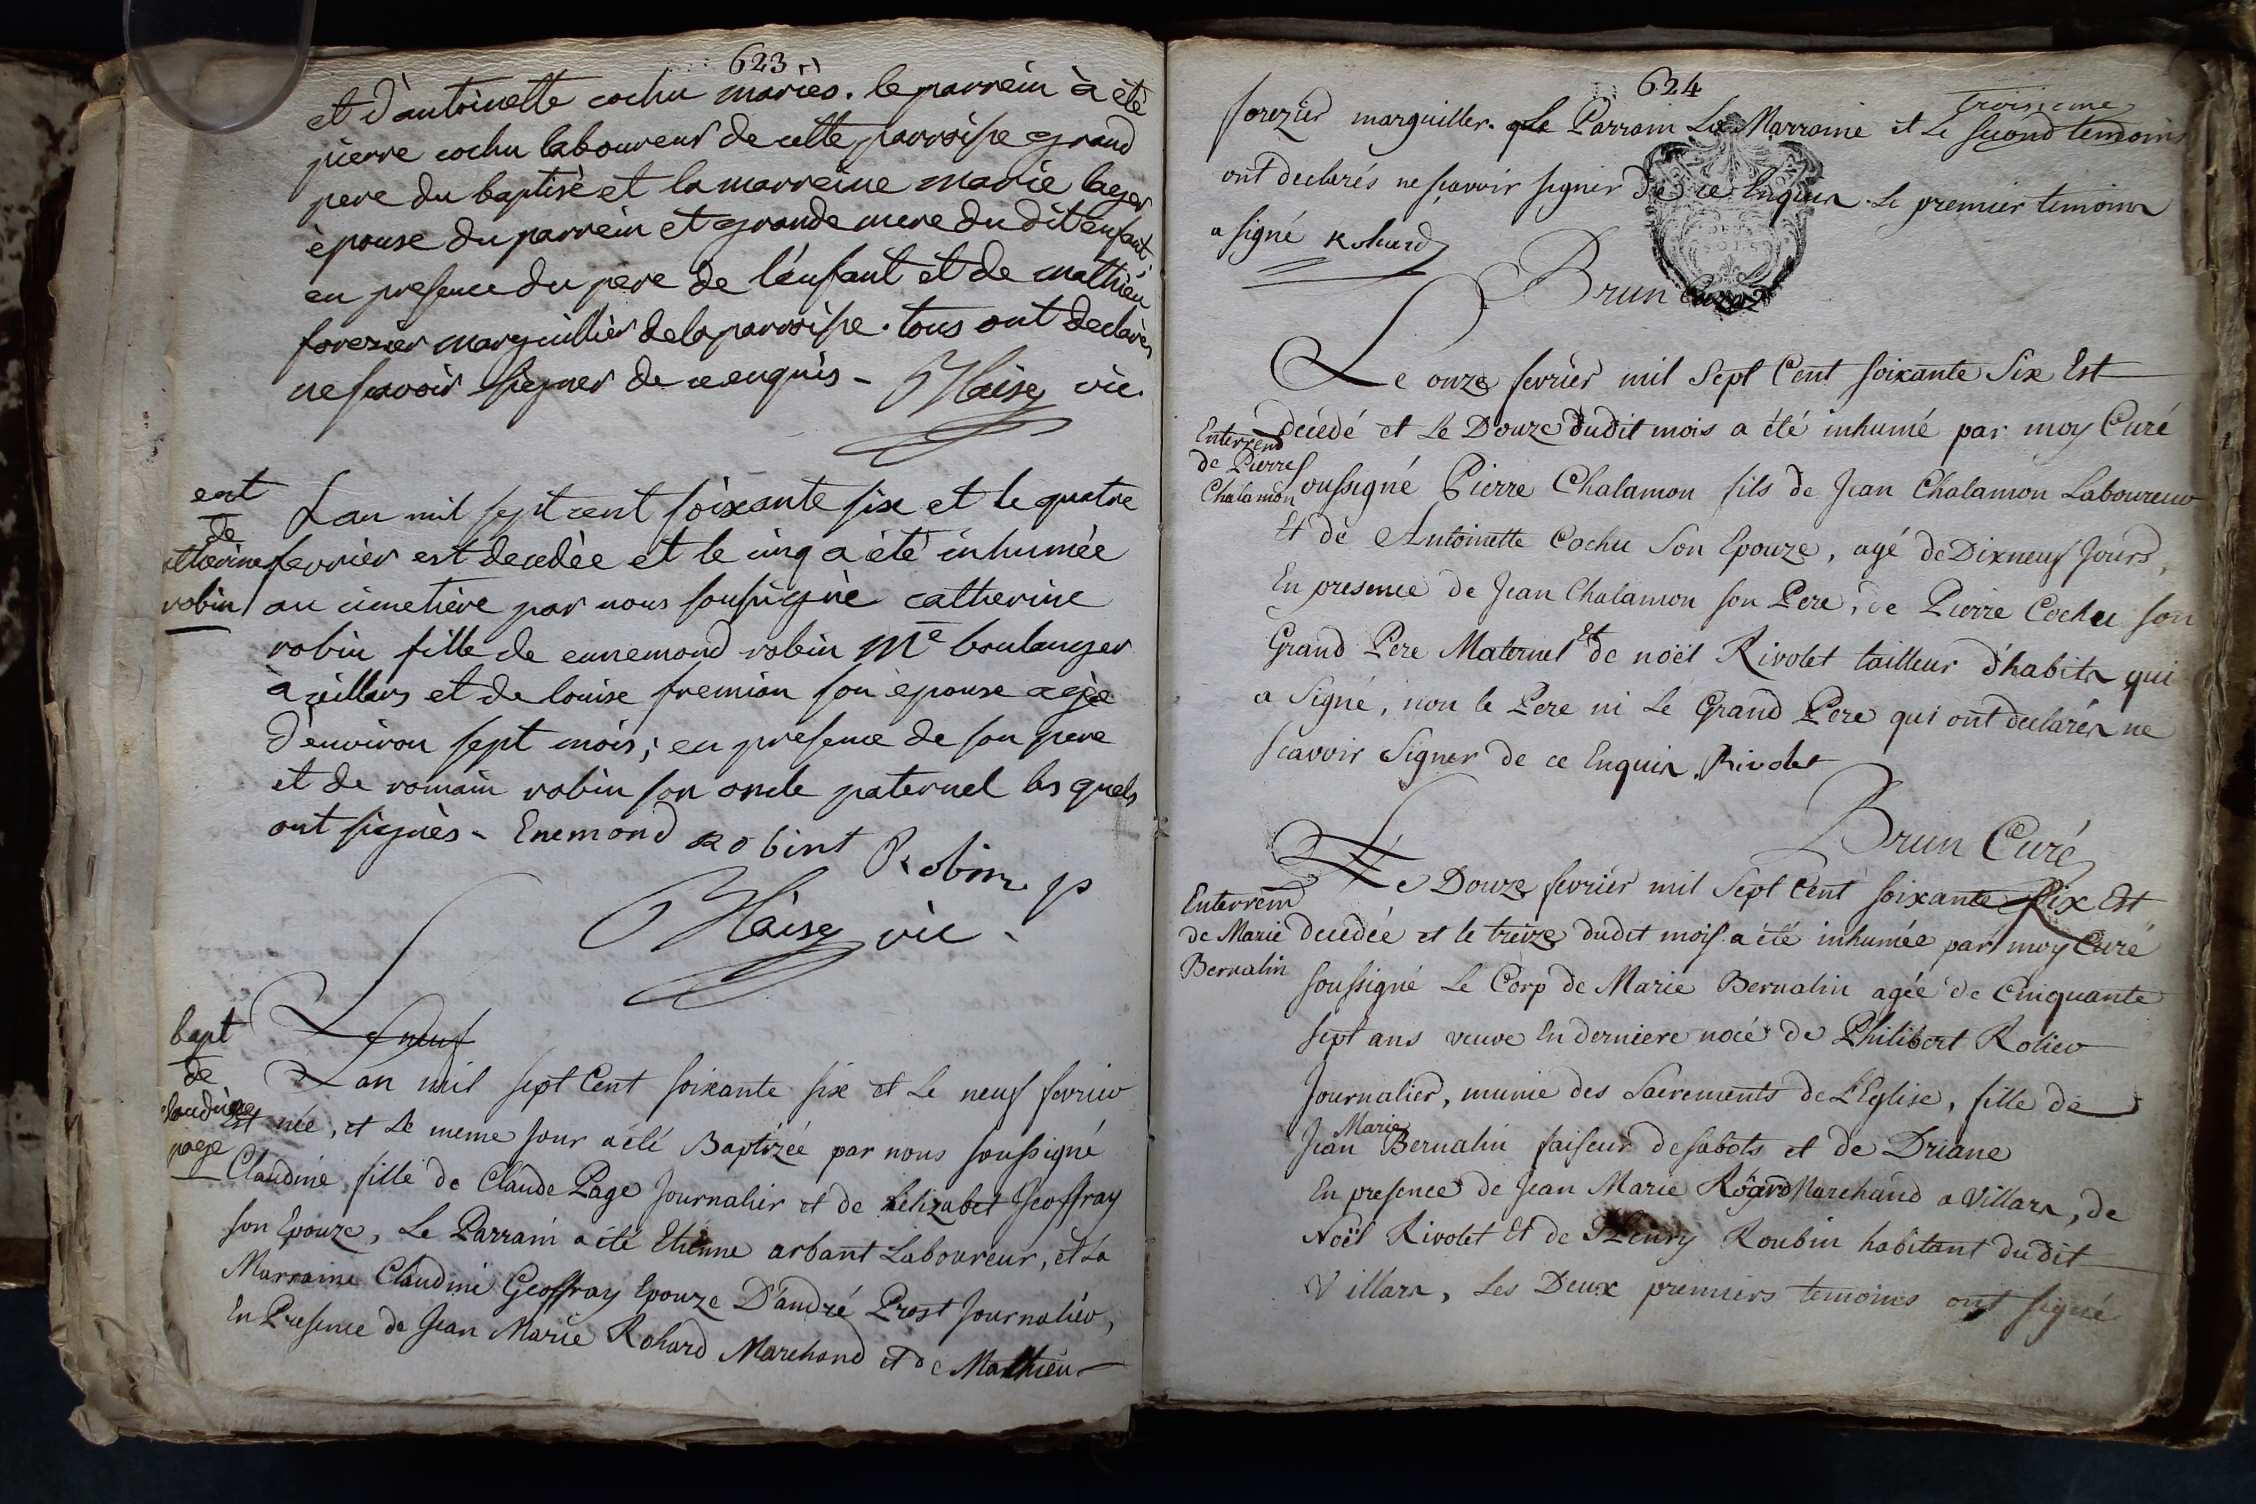 623
et d'antoinette cochu mariès. le parrein à été
pierre cochu laboureur de cette parroisse grand
pere du baptisé et la marreine marie lager
èpouse du parrein et grande mere du dit enfant,
en presence du pere de l'enfant et de mathieu
forezier marguillier de la parroisse. tous ont declarès
ne scavoir signer de ce enquis - Blaise vic.
ent
de
catherine
robin
L'an mil sept cent soixante six et le quatre
fevrier est decedèe et le cinq a été inhumée
au cimetière par nous soussigné catherine
robin fille de ennemond robin Me boulanger
à villars et de louise fremion son epouse agèe
d'environ sept mois; en presence de son pere
et de romain robin son oncle paternel les quels
ont signès - Enemond Robint Robin p
Blaise vic -
bapt
de
claudine
page
Le neuf
L'an mil sept Cent soixante six et Le neuf fevrier
Est née, et Le meme jour a été Baptizée par nous soussigné
Claudine fille de Claude Page Journalier et de Elizabet Geoffray
son Epouze, Le Parrain a été Etienne arbant Laboureur, et La
Marraine Claudine Geoffray Epouze D'andré Prost Journalier,
En Presence de Jean Marie Rohard Marchand et de Mathieu
624
forezier marguiller. Le Parrain La Marraine et Le second temoins
troisieme
ont declarés ne scavoir signer de ce Enquis. Le premier temoins
a signé Rohard
Brun Curé
Enterrend
de Pierre
Chalamon
Le onze fevrier mil Sept Cent soixante Six Est
decedé et Le Douze dudit mois a été inhumé par moy Curé
soussigné Pierre Chalamon fils de Jean Chalamon Laboureur
Et de Antoinette Cochu Son Epouze, agé de Dixneuf Jours,
En presence de Jean Chalamon son Pere, de Pierre Cochu son
Grand Pere Maternel et de noël Rivolet tailleur d'habits qui
a Signé, non le Pere ni Le Grand Pere qui ont declarés ne
scavoir Signer de ce Enquis. Rivolet
Brun Curé
Enterrem
de Marie
Bernalin
Le Douze fevrier mil Sept Cent soixante Six Est
decedée et le treize dudit mois a été inhumée par moy Curé
soussigné Le Corp de Marie Bernalin agée de cinquante
sept ans veuve En derniere nocé de Philibert Rolier
Journalier, munie des Sacrements de L'Eglise, fille de
Jean Marie Bernalin faiseur de sabots et de Driane
En presence de Jean Marie Roard Marchand a Villars, de
Noël Rivolet Et de Fleury Roubin habitant dudit
Villars, Les Deux premiers temoins ont signé